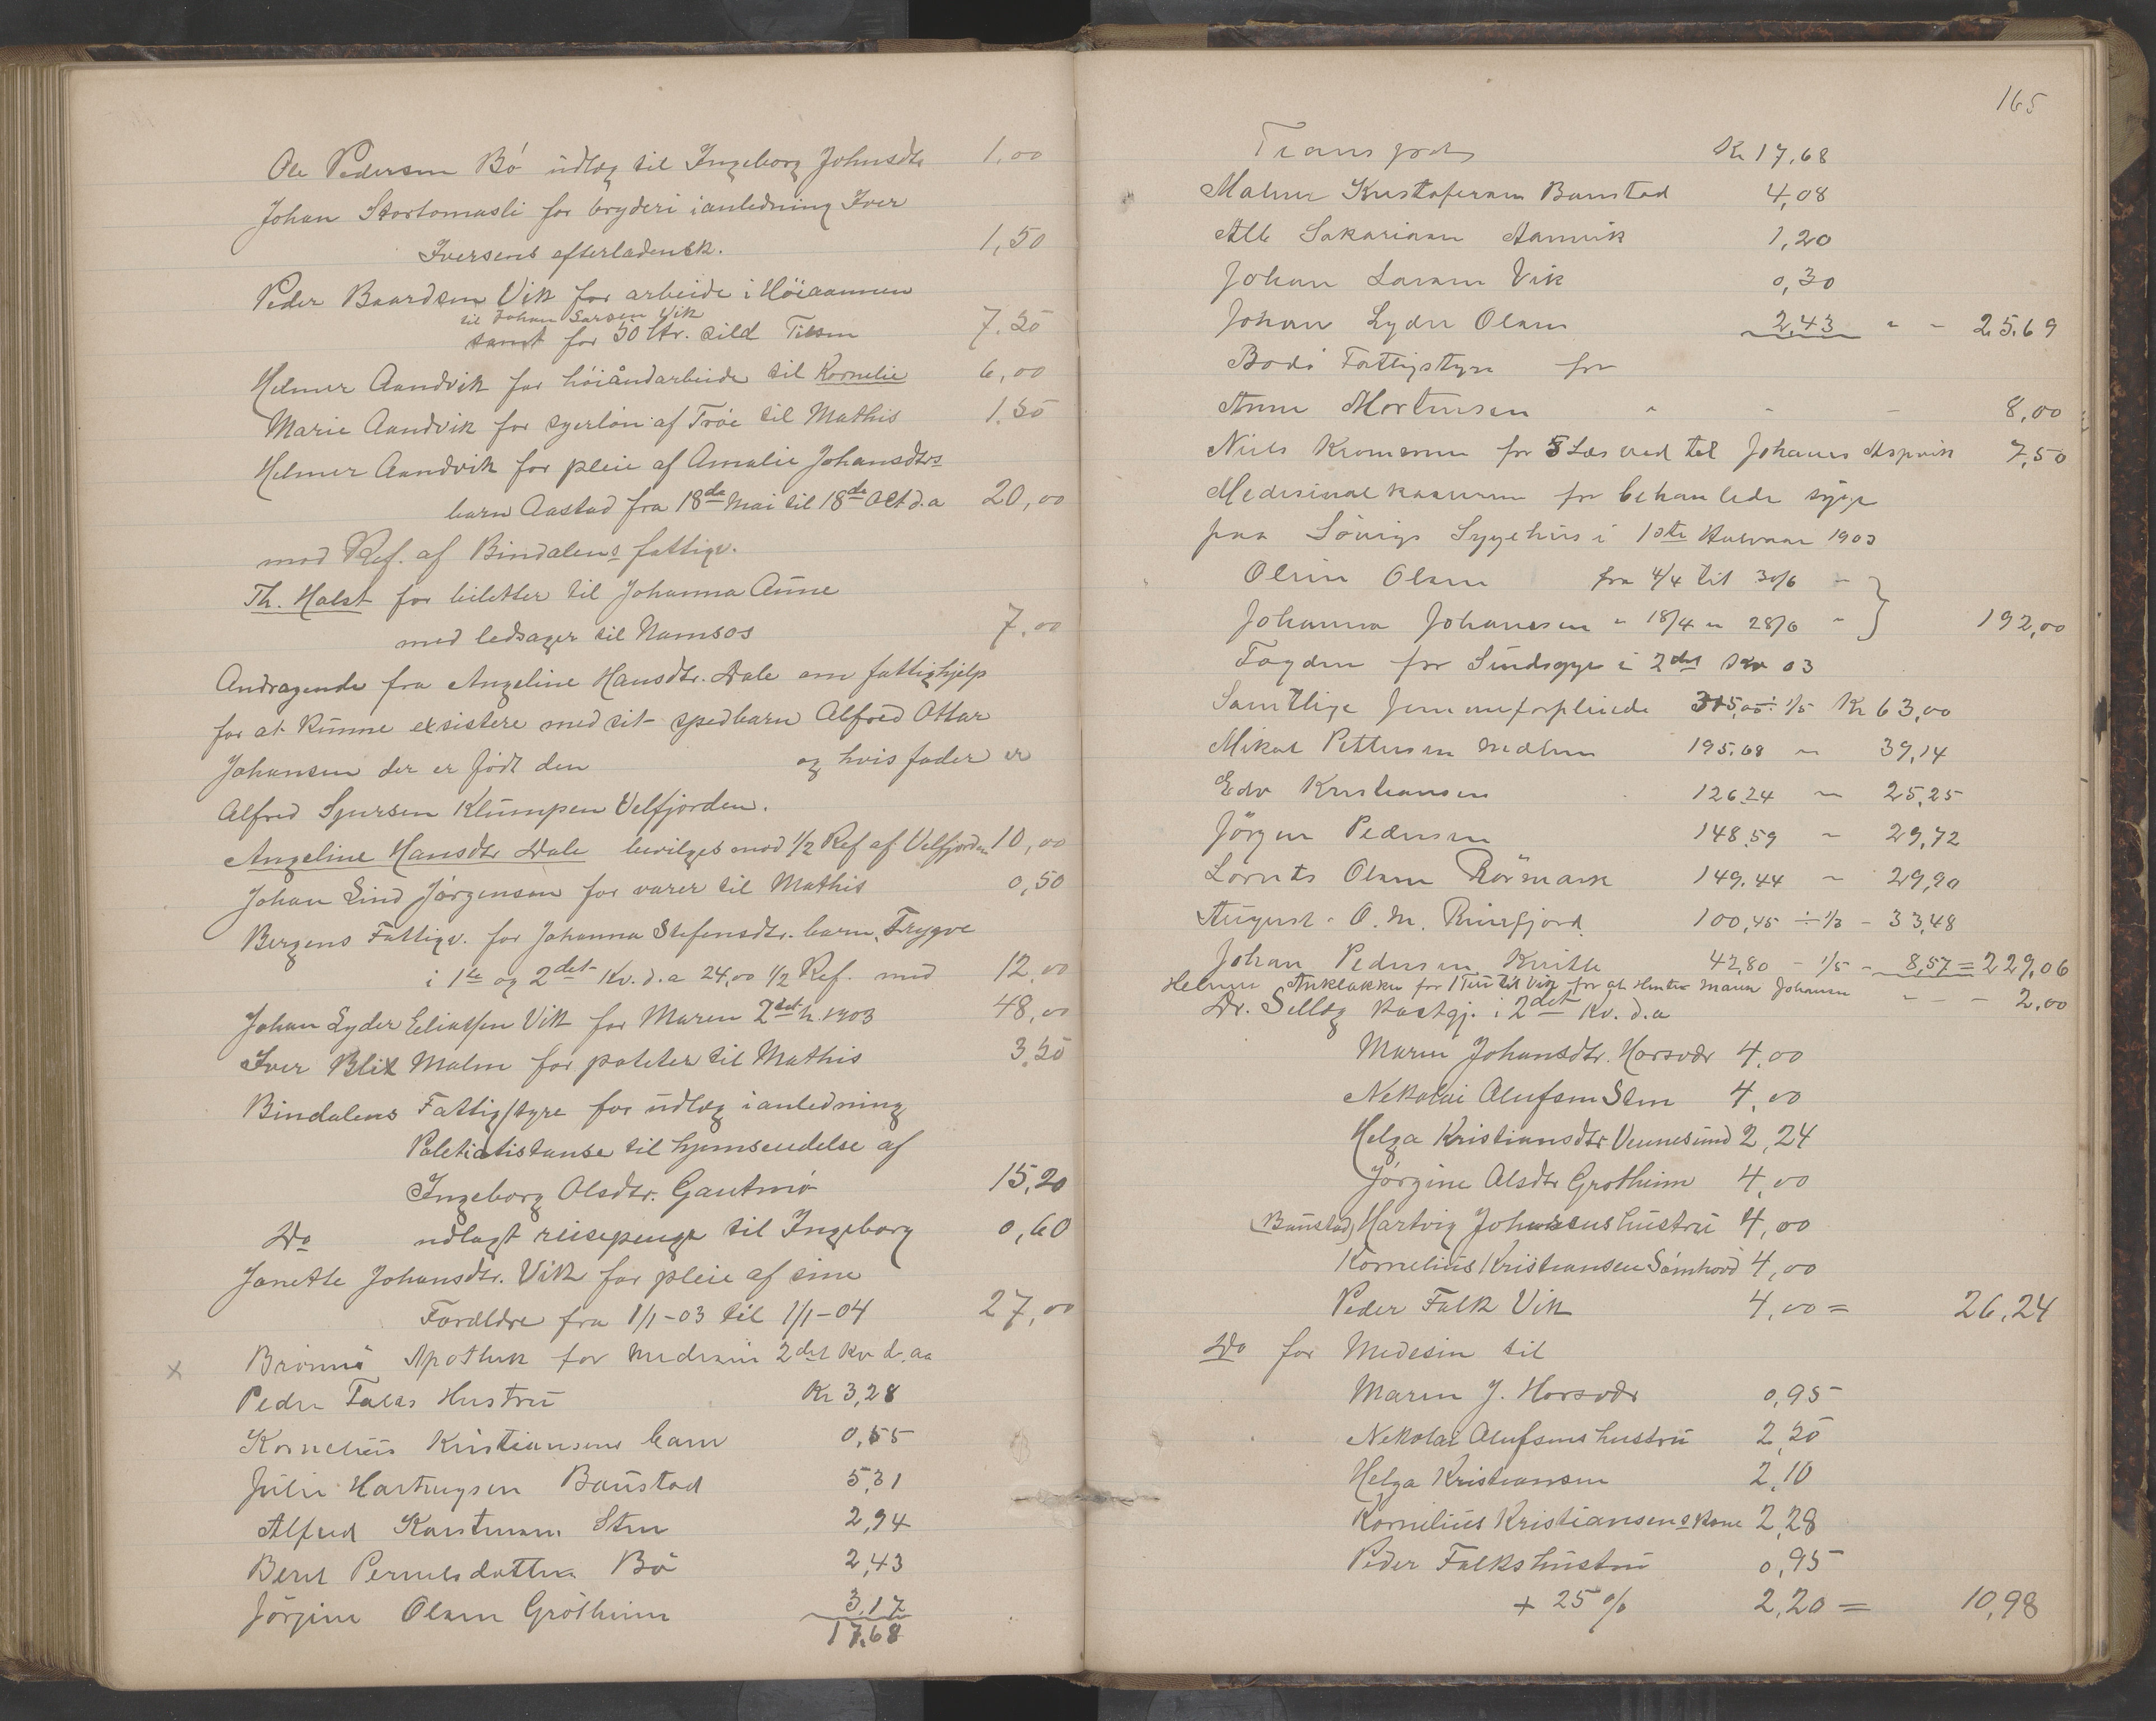 Ole Pedersen Bö udlæg til Ingeborg Johnsdtr 1,00
Johan Stortomasli for bryderi i anledning Iver
Iversens efterladensk. 1,50
Peder Baardsen Vik for arbeide i Höiaannen
til Johan Larsen Vik
samt for 50 ltr. sild Tilsm 7.50
Helmer Aandvik for höiåndarbeide til Kornelie 6,00
Marie Aandvik for syerlön af Tröe til Mathis 1.50
Helmer Aandvik for pleie af Amalie Johansdtrs
barn Aastad fra 18de Mai til 18de Okt d.a 20,00
mod Ref. af Bindalens fattigv.
Th. Halst for biletter til Johanna Aune
med ledsager til Namsos 7.00
Andragende fra Angeline Hansdtr. Dale om fattighjelp
for at kunne eksistere med sit spedbarn Alfred Ottar
Johansen der er födt den og hvis fader er
Alfred Sjursen Klumpen Velfjorden.
Angeline Hansdtr Dale bevilges mod 1/2 Ref af Velfjorden 10,00
Johan Lind Jörgensen for varer til Mathis 0,50
Bergens Fattigv. for Johanna Stefensdtr. barn, Trygve
i 1ste og 2det Kv. d.a 24,00 1/2 Ref. med 12,00
Johan Lyder Eliassen Vik for Maren 2det h. 1903 48,00
Iver Blix Malm for poteter til Mathis 3.50
Bindalens Fattigstyre for udlæg i anledning
Poletiatistanse til hjemsendelse af
Ingeborg Olsdtr. Gautmö 15,20
Do udlagt reisepenge til Ingeborg 0,60
Janette Johansdtr. Vik for pleie af sine
Foreldre fra 1/1-03 til 1/1-04 27,00
x Brönnö Apothek for medesin 2det Kv d. aa
Peder Falks Hustru Kr 3,28
Kornelius Kristiansens barn 0,55
Julie Hartvigsen Baustad 5,31
Alfred Karstensen Sten 2,94
Beret Pernelsdatter Bö 2,43
Jörgine Olsen Grötheim 3.17
17,68
165
Transport Kr 17,68
Malene Kristofersen Baustad 4,08
Alb Sakariasen Aanvik 1,20
Johan Larsen Vik 0,30
Johan Lyder Olsen 2,43 " - 25.69
Bodö Fattigstyre for
Anne Mortensen " - - 8,00
Niels Kromoen for 5 Læs ved til Johanes Aspvik 7,50
Medesinalkassen for behanlede syge
paa Sövigs Sygehus i 1ste Halvaar 1903
Olrine Olsen fra 4/4 til 30/6 "
Johanna Johanesen " 18/4 " 28/6 " } 192,00
Fogden for Sindssyge i 2det Kv 03
Samtlige hjemmeforpleiede 315,00 ÷ 1/5 Kr 63,00
Mikal Pettersen Medhus 195.68 " 39,14
Edv Kristiansen 126.24 " 25,25
Jörgen Pedersen 148.59 " 29,72
Lornts Olsen Rörmark 149.44 " 29,90
August O. M. Rinfjord 100,45 ÷ 1/3 - 33,48
Johan Pedersen Kvitle 42,80 - 1/5 - 8,57 = 229,06
Helmer Anklakken for 1 Tur til Vik for at hente Maren Johansen " - - 2.00
Dr. Sellæg kostgj. i 2det Kv. d.a
Maren Johansdtr. Horsvær 4,00
Nekolai Alufsen Sten 4,00
Helga Kristiansdtr Vennesund 2,24
Jörgine Olsdtr Grotheim 4,00
(Baustad) Hartvig Johnsens hustru 4,00
Kornelius Kristiansen Sömhovd 4,00
Peder Falk Vik 4,00 = 26,24
Do for Medesin til
Maren J. Horsvær 0,95
Nekolai Alufsens hustru 2,50
Helga Kristiansen 2,10
Kornelius Kristiansens kone 2,28
Peder Falks hustru 0,95
+ 25 % 2,20 = 10,98